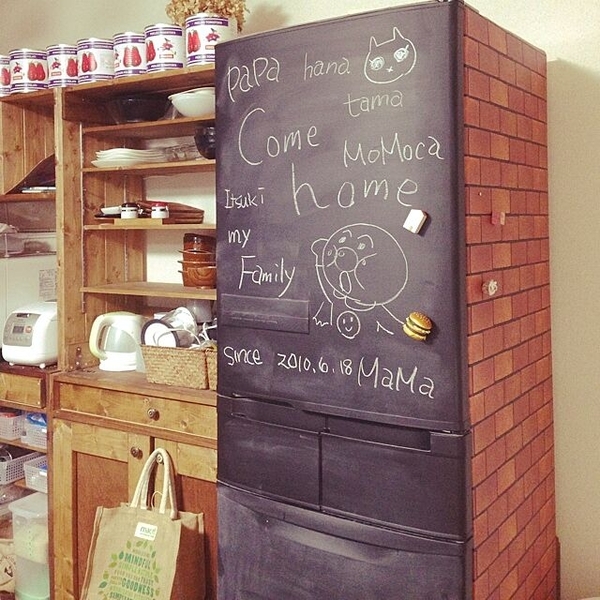 papa hana
tama
Come MoMoca
Itsuki home
my
Family
since 2010.6.18 MaMa
MINDFUL
GOODNESS